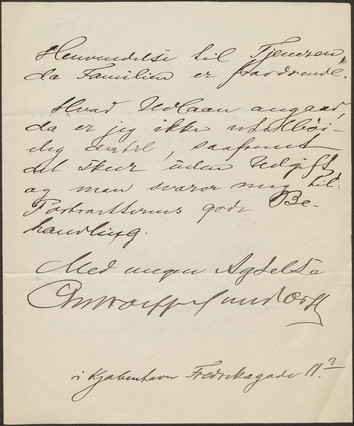 Henvendelse til Tjeneren,
da Familien er fraværende.
Hvad Udlaan angaar,
da er jeg ikke utilbøi-
lig dertil, saafremt
det skeer uden Udgift
og man svarer mig til
Portraitternes gode Be-
handling.
Med megen Agtelse
i Kjøbenhavn Fredriksgade 11.3